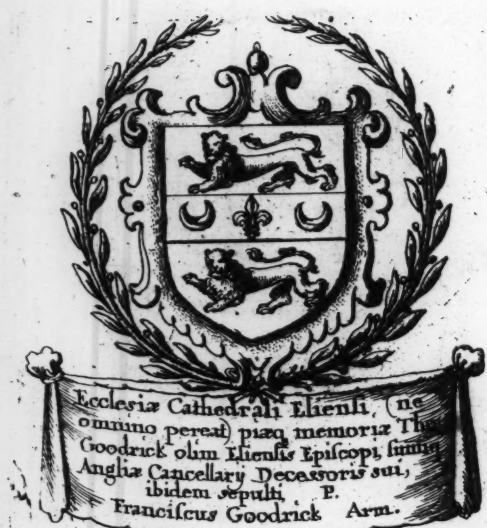 Ecclesiæ Cathedrali Eliensi, (ne
omnino pereat) piæq memoriæ Tho
Goodrick olim Eliensis Episcopi, simulq
Angliæ Cancellarÿ Decessoris sui,
ibidem sepulti, P.
Franciscus Goodrick Arm.